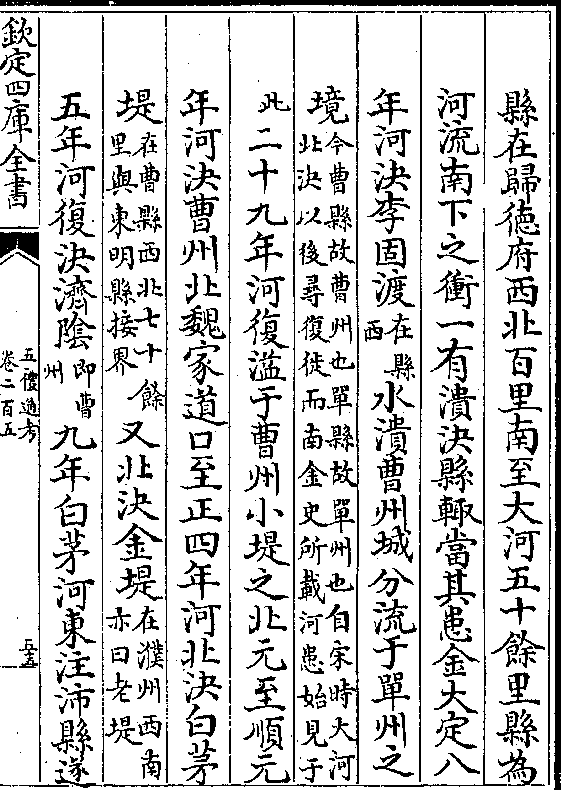 縣在歸徳府西北百里南至大河五十餘里縣為
河流南下之衝一有潰決縣輙當其患金大定八
年河決李固渡在縣西水潰曹州城分流于單州之
境今曹縣故曹州也單縣故單州也自宋時大河北決以後尋復徙而南金史所載河患始見于
此二十九年河復溢于曹州小堤之北元至順元
年河決曹州北魏家道口至正四年河北決白茅
堤在曹縣西北七十餘里與東明縣接界又北決金堤在濮州西南亦曰老堤
五年河復決濟陰即曹州九年白茅河東注沛縣遂
欽定四庫全書
五禮通考
卷二百五
三五